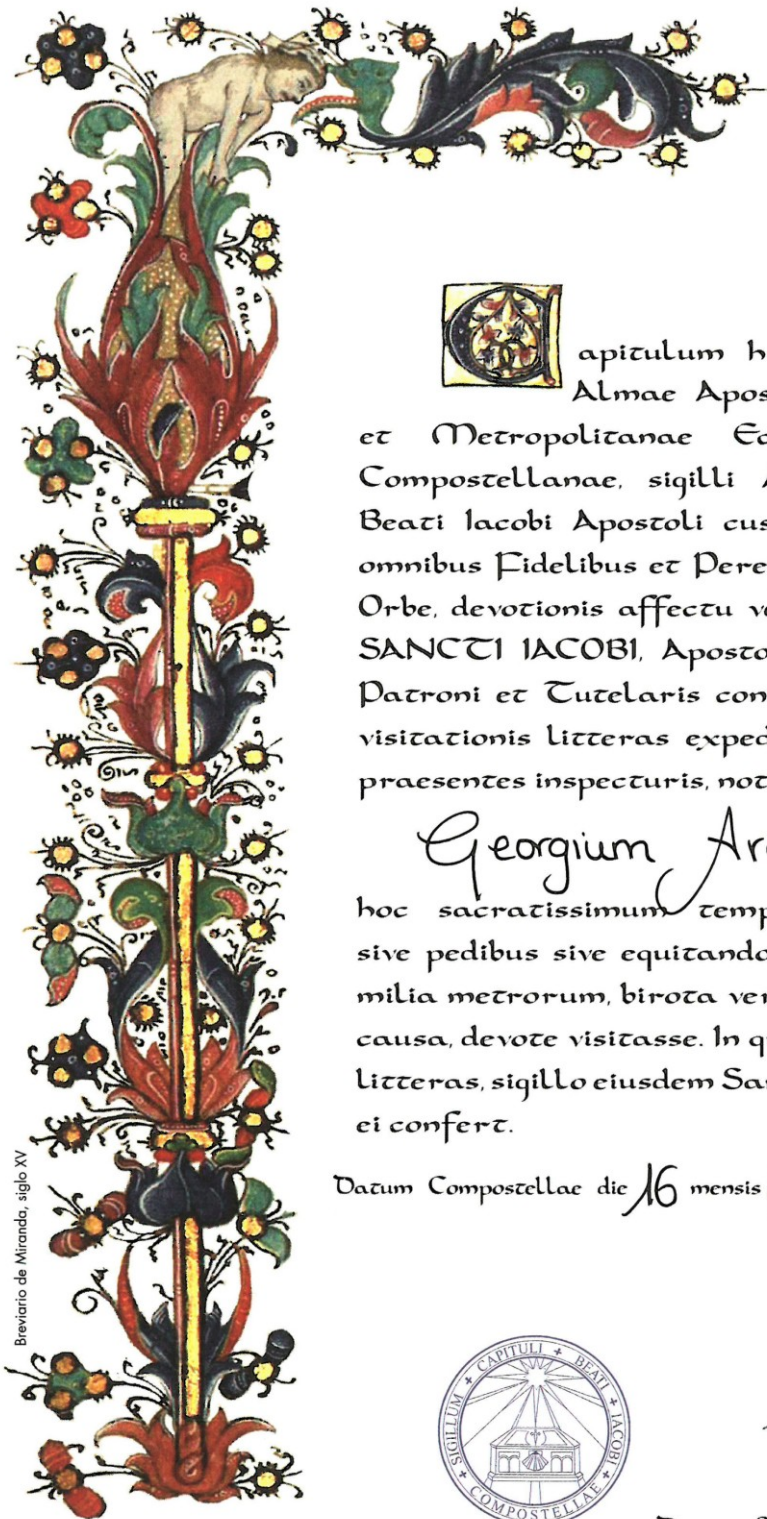 Capitulum h
Almae Apos
et Metropolitanae Ec
Compostellanae, sigilli
Beati Iacobi Apostoli cus
omnibus Fidelibus et Pere
Orbe, devotionis affectu ve
SANCTI IACOBI, Aposto
Patroni et Tutelaris con
visitationis litteras exped
praesentes inspecturis, not
Georgium Ar
hoc sacratissimum temp
sive pedibus sive equitando
milia metrorum, birota ver
causa, devote visitasse. In q
litteras, sigillo eiusdem San
ei confert.
Datum Compostellae die 16 mensis
Breviario de Miranda, siglo XV
SIGILLUM + CAPITULI + BEATI + IACOBI + COMPOSTELLAE +